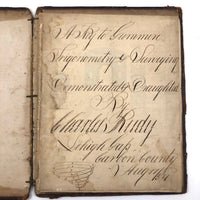 A Key to Gummere
Trigonometry & Surveying
Demonstrated & Taught
By
Charles Rudy
Lehigh Gap
Carbon County
August